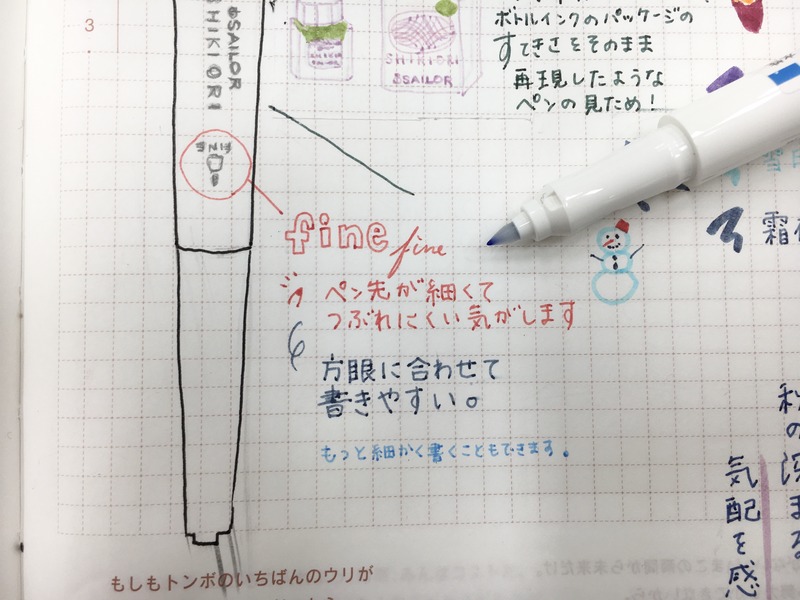 3
SAILOR
SHIKIORI
SHIKIORI
SAILOR
ボトルインクのパッケージの
すてきさをそのまま
再現したような
ペンの見ため!
fine fine
ペン先が細くて
つぶれにくい気がします
方眼に合わせて
書きやすい。
もっと細かく書くこともできます。
霜
の深まる
気配を感
もしもトンボのいちばんのウリが